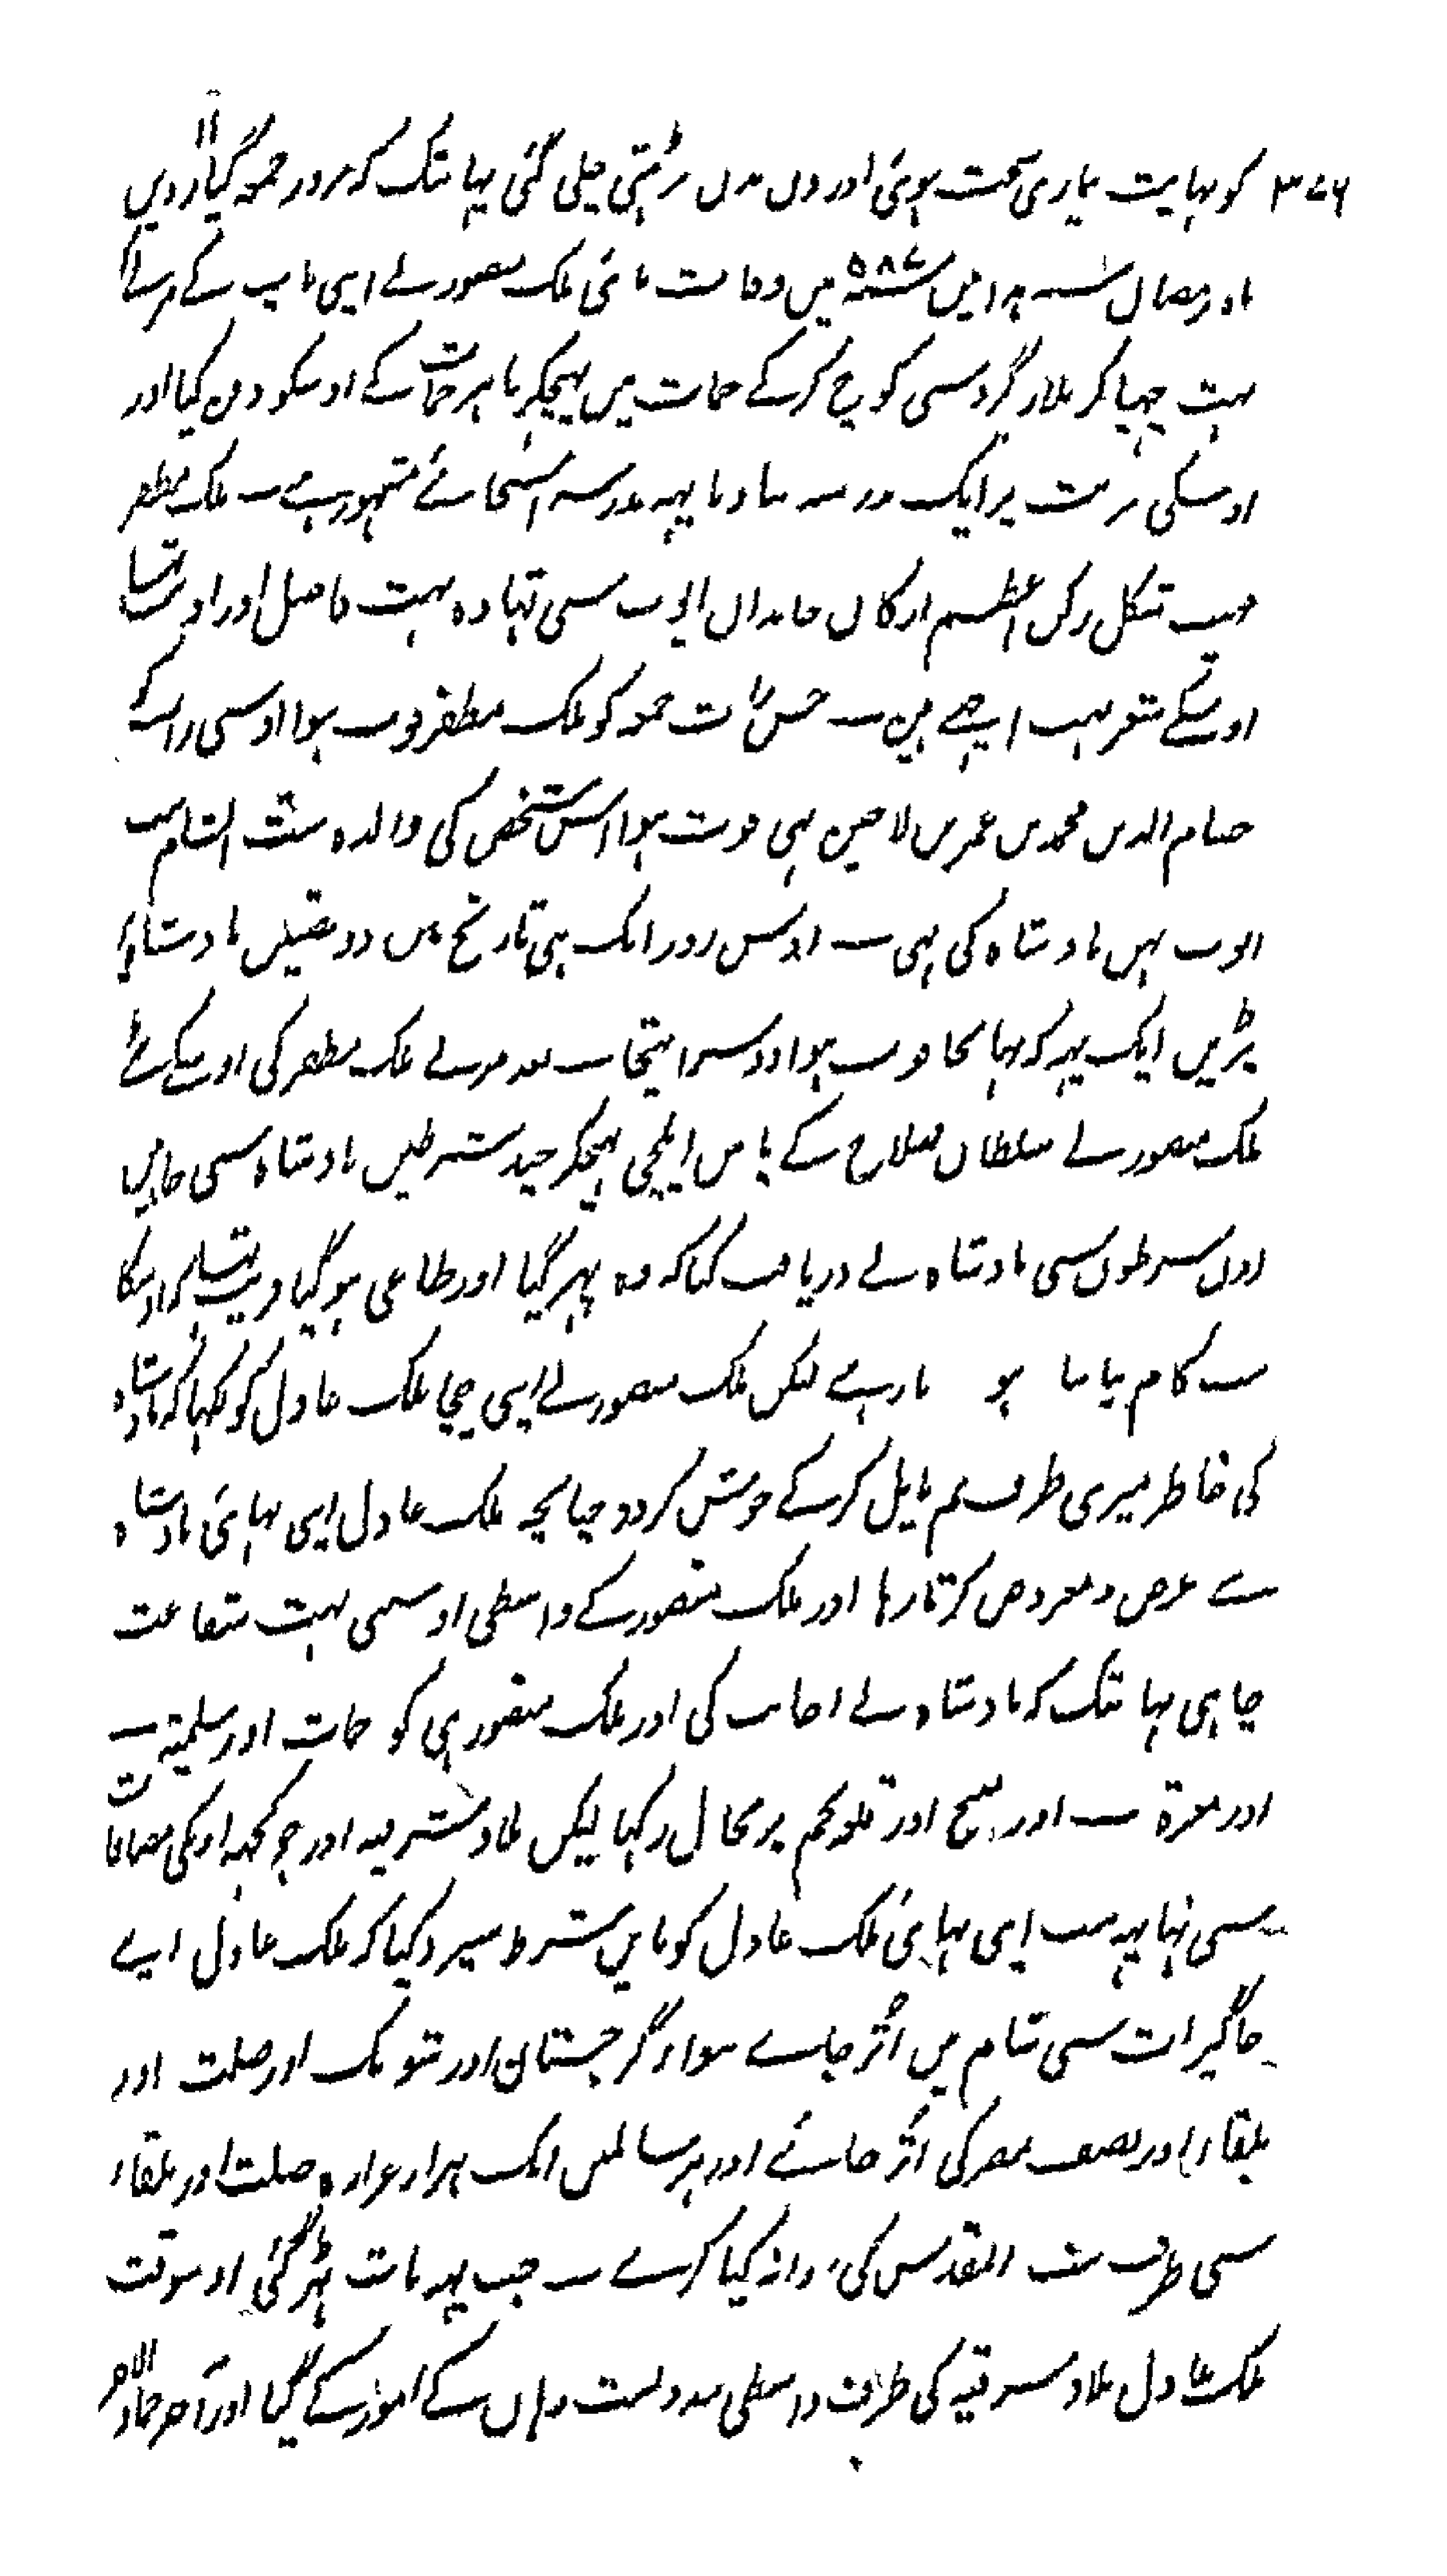 ۳۷۶ کو نہایت بیماری سخت ہوئی اور دن بدن بڑہتی چلی گئی یہانتک کہ بروز جمعہ گیارویں ۱۱
ماہ رمضان سنہ ہذا میں سنہ ۵۸۷ میں وفات پائی ملک منصور نے اپنی باپ کے مرنے کو
بہت چہپا کر ملازگرد سی کوچ کرکے حمات میں پہنچکر باہر حمات کے اوسکو دفن کیا اور
اوسکی تربت پر ایک مدرسہ بنا دیا یہہ مدرسہ اسجائے مشہور ہے ــ ملک مظفر
مہیب شکل رکن اعظم ارکان خاندان ایوب سی تہا وہ بہت فاضل اور ادیب تہا
اوسکے شعر بہت اچہے ہین ــ جس رات جمعہ کو ملک مظفر فوت ہوا اوسی رات کو
حسام الدین محمد بن عمر بن لاجین بہی فوت ہوا اس شخص کی والدہ ست الشام بنت
ایوب بہن بادشاہ کی تہی ــ اوس روز ایک ہی تاریخ میں دو مصیبتیں بادشاہ پر
پڑیں ایک یہہ کہ بہانجا فوت ہوا دوسرا بہتیجا ــ بعد مرنے ملک مظفر کی اوسکے بیٹے
ملک منصور نے سلطان صلاح کے پاس ایلچی بہیجکر چند شرطیں بادشاہ سی چاہیں
اون شرطوں سی بادشاہ نے دریافت کیا کہ وہ پہر گیا اور طاغی ہو گیا قریب تہا کہ اوسکا
سب کام بنا بنایا ہو تا رہے لیکن ملک منصور نے اپنی چچا ملک عادل کو لکہا کہ بادشاہ
کی خاطر میری طرف تم مایل کرکے خوش کردو چنانچہ ملک عادل اپنی بہائی بادشاہ
سے عرض و معروض کرتا رہا اور ملک منصور کے واسطی اوسی بہت شفاعت
چاہی یہانتک کہ بادشاہ نے اجابت کی اور ملک منصور ہی کو حمات اور سلمیتہ ــ
اور معرۃ ــ اور منبج اور قلعہ نجم پر بحال رکہا لیکن بلاد شرقیہ اور جو کچہہ اوسکی مضافات
سی تہا یہہ سب اپنی بہائی ملک عادل کو باین شرط سپرد کیا کہ ملک عادل اپنے
جاگیرات سی شام میں اتر جاے سواے گرجستان اور شوبک اور صلت اور
بلقاء اور نصف مصر کی اتر جائے اور ہر سالمیں ایک ہزار غرارہ صلت اور بلقاء
سی طرف بیت المقدس کی روانہ کیا کرے ــ جب یہہ بات ٹہر گئی اوسوقت
ملک عادل بلاد شرقیہ کی طرف واسطی بندوبست وہاں کے امور کے گیا اور آخر جماد الآخر